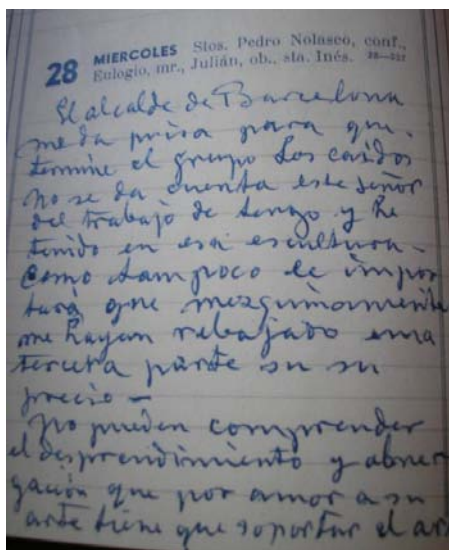 28 MIERCOLES Stos. Pedro Nolasco, conf.,
Eulogio, mr., Julián, ob., sta. Inés. 28-337
El alcalde de Barcelona
me da prisa para que
termine el grupo Los caidos
no se da cuenta este señor
del trabajo de tengo y he
tenido en esa escultura -
como tampoco le impor
tará que mezquinamente
me hayan rebajado una
tercera parte en su
precio -
No pueden comprender
el desprendimiento y abne
gación que por amor a su
arte tiene que soportar el ar